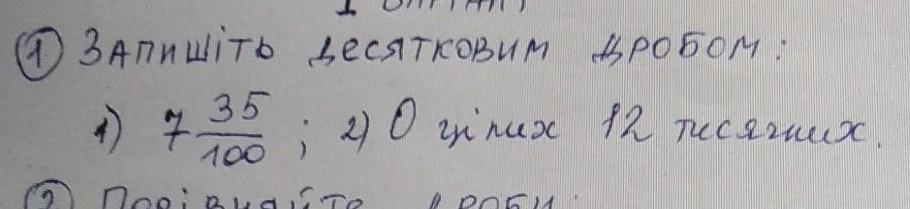 I ВАРІАНТ
① ЗАПИШІТЬ ДЕСЯТКОВИМ ДРОБОМ:
1) 7 35/100 ; 2) 0 цілих 12 тисячних.
② Порівняйте ДРОБИ: